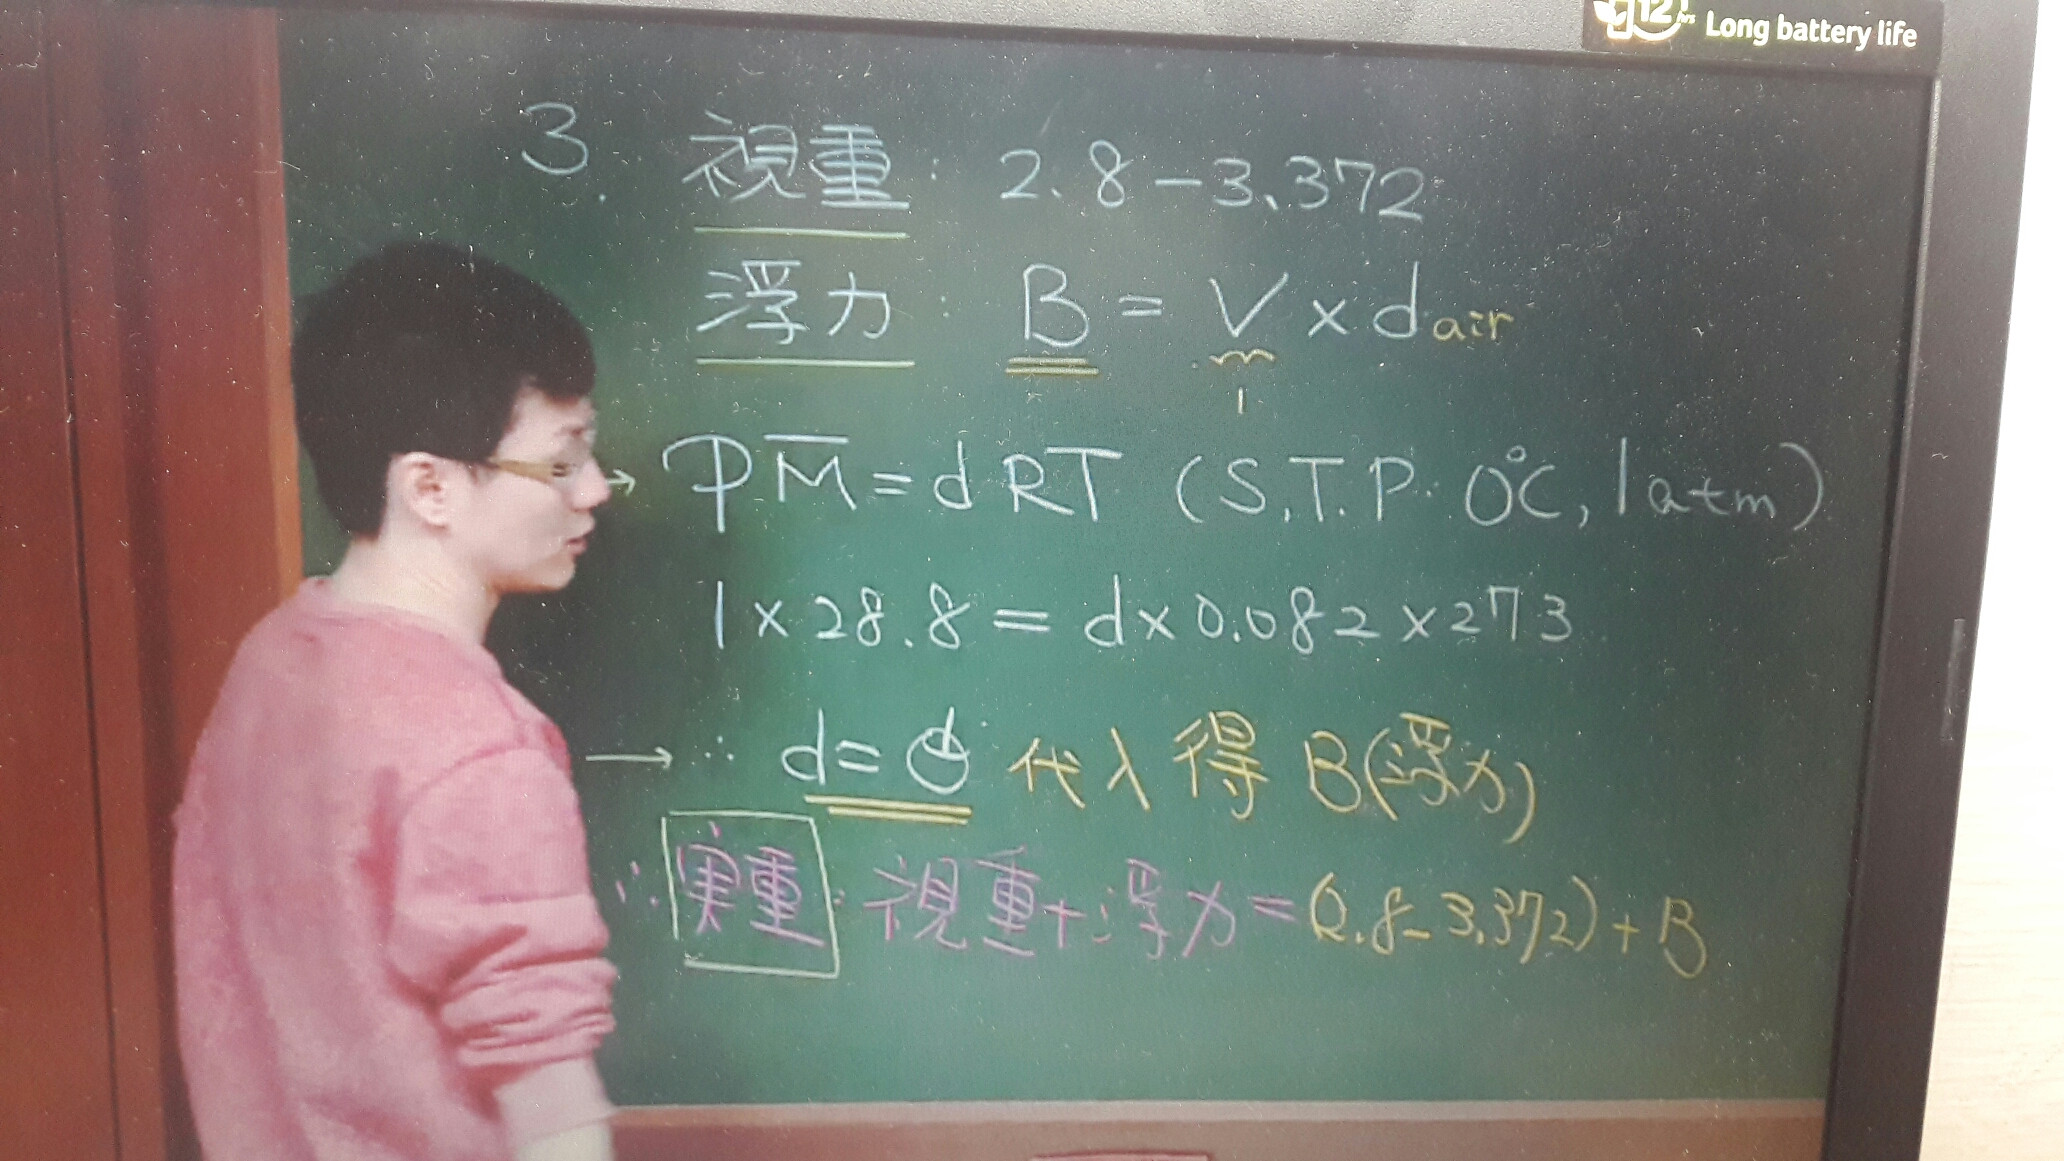 12hrs Long battery life
3. 視重: 2.8-3.372
浮力: B = V × d air
1
→ PM̅ = dRT (S.T.P. 0°C, 1atm)
1 × 28.8 = d × 0.082 × 273
→ ∴ d = 代入得 B(浮力)
∴ 実重: 視重+浮力=(2.8-3.372)+B